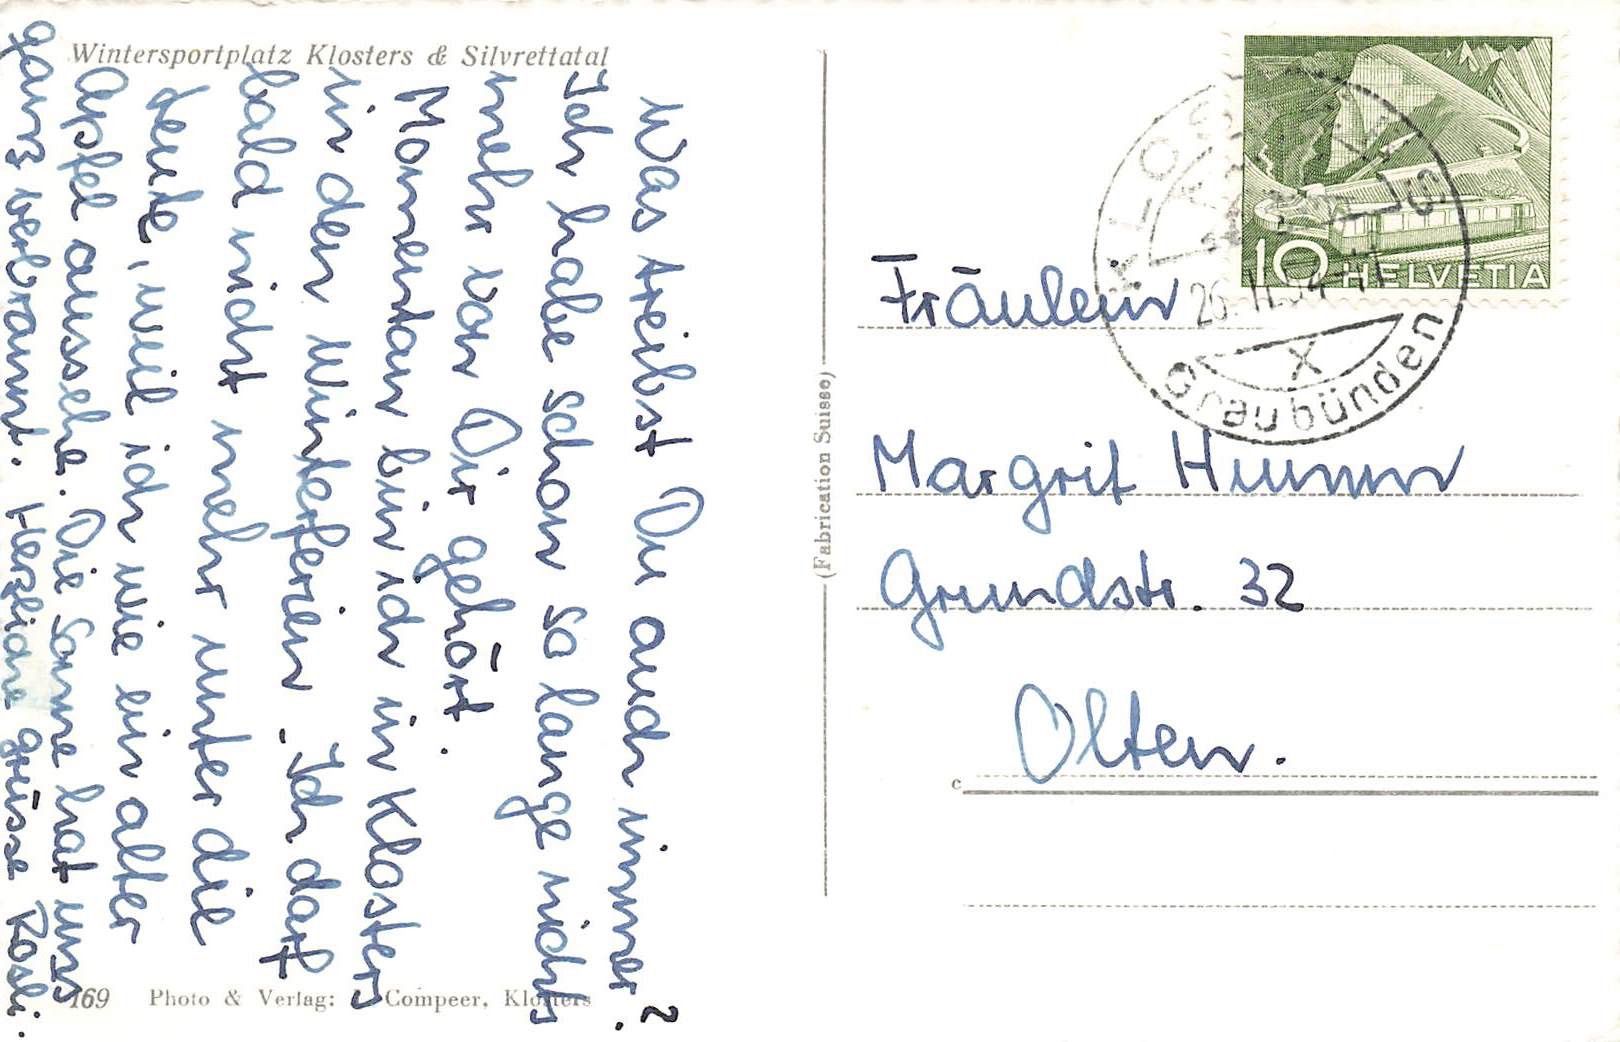 Wintersportplatz Klosters & Silvrettatal
Was treibst Du auch immer?
Ich habe schon so lange nichts
mehr von Dir gehört.
Momentan bin ich in Klosters
in den Winterferien. Ich darf
bald nicht mehr unter die
Leute, weil ich wie ein alter
Apfel aussehe. Die Sonne hat uns
ganz verbrannt. Herzliche Grüsse Rosli.
169 Photo & Verlag: Compeer, Klosters
(Fabrication Suisse)
10 HELVETIA
KLOSTERS
26. II.
X
Graubünden
Fräulein
Margrit Humm
Grundstr. 32
Olten.
c